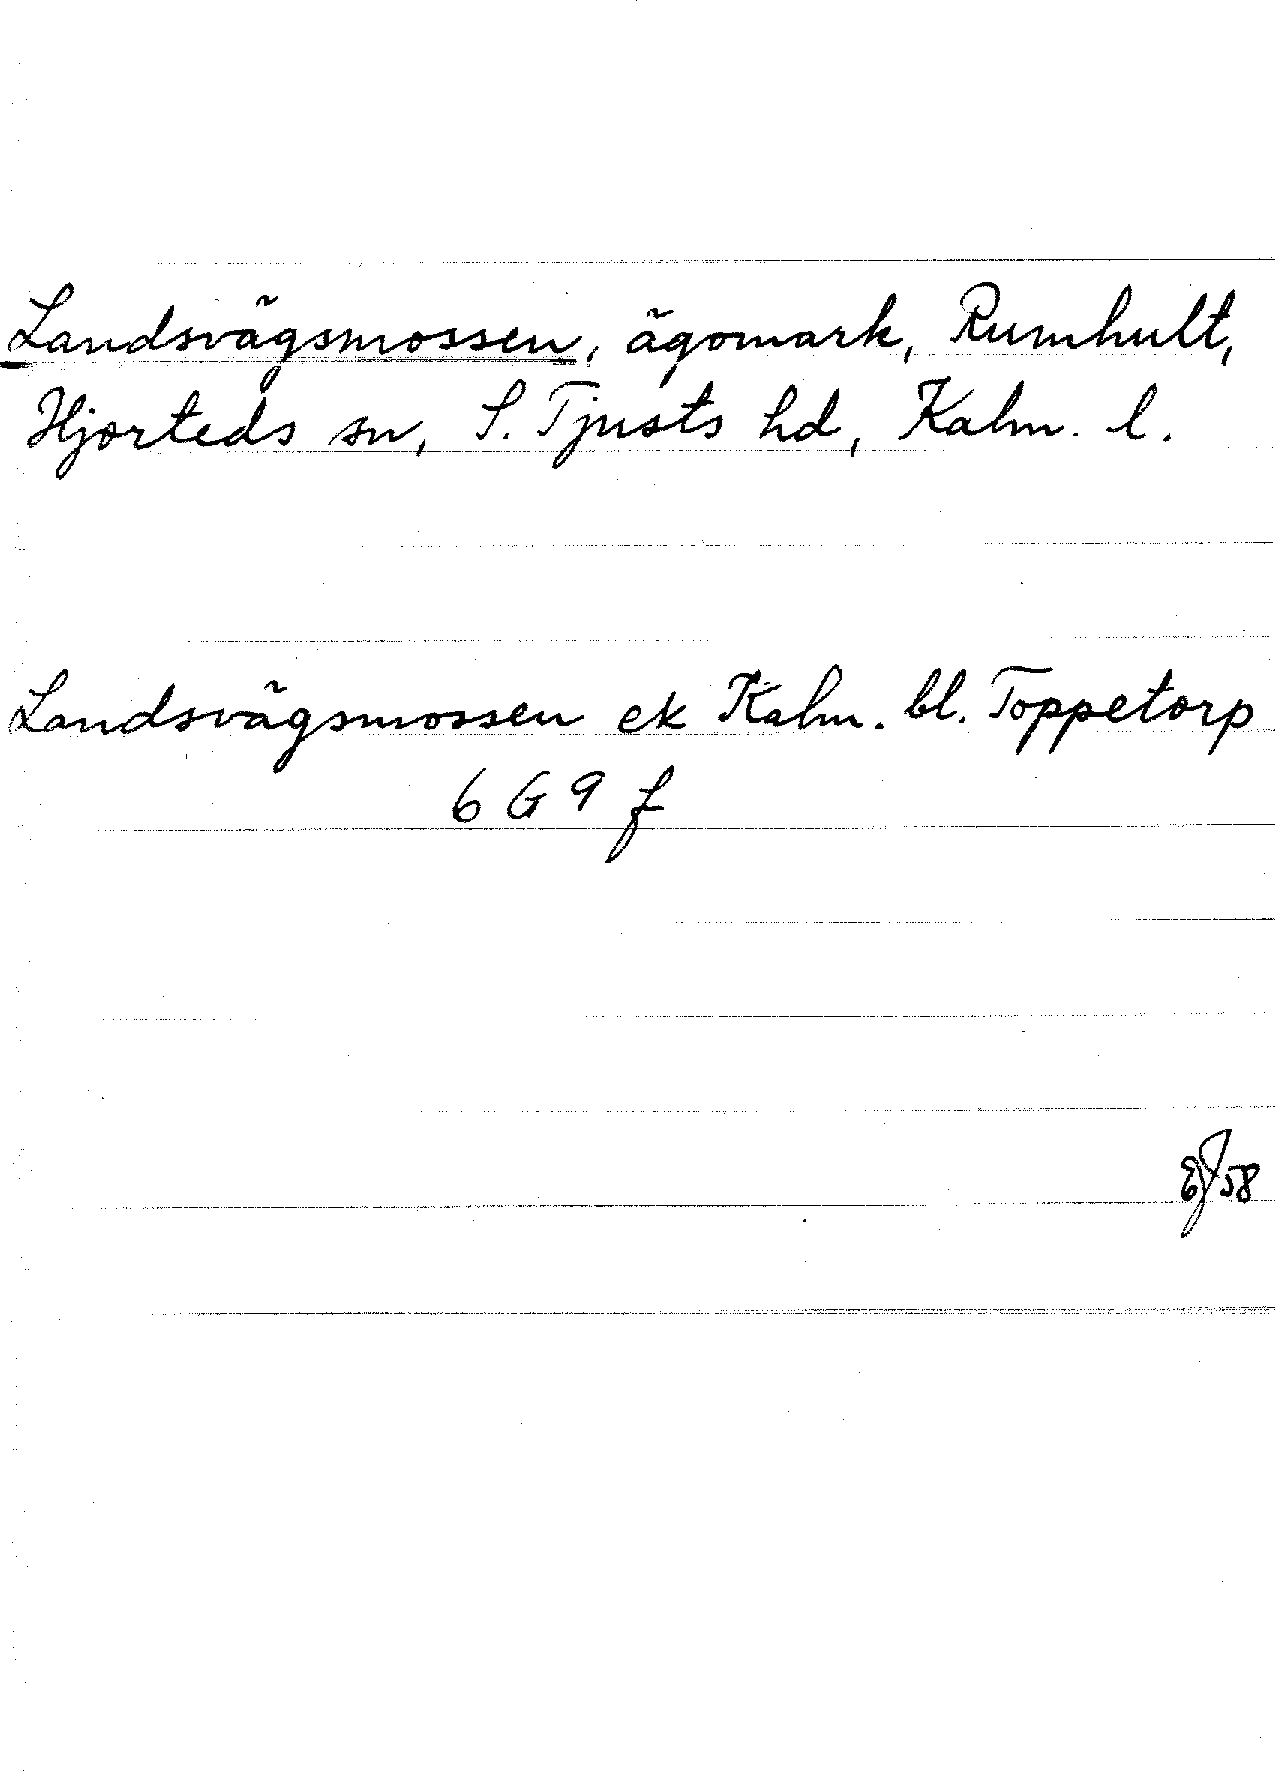 Landsvägsmossen, ägomark, Rumhult,
Hjorteds sn, S. Tjusts hd, Kalm. l.
Landsvägsmossen ek Kalm. bl. Toppetorp
6 G 9 f
58